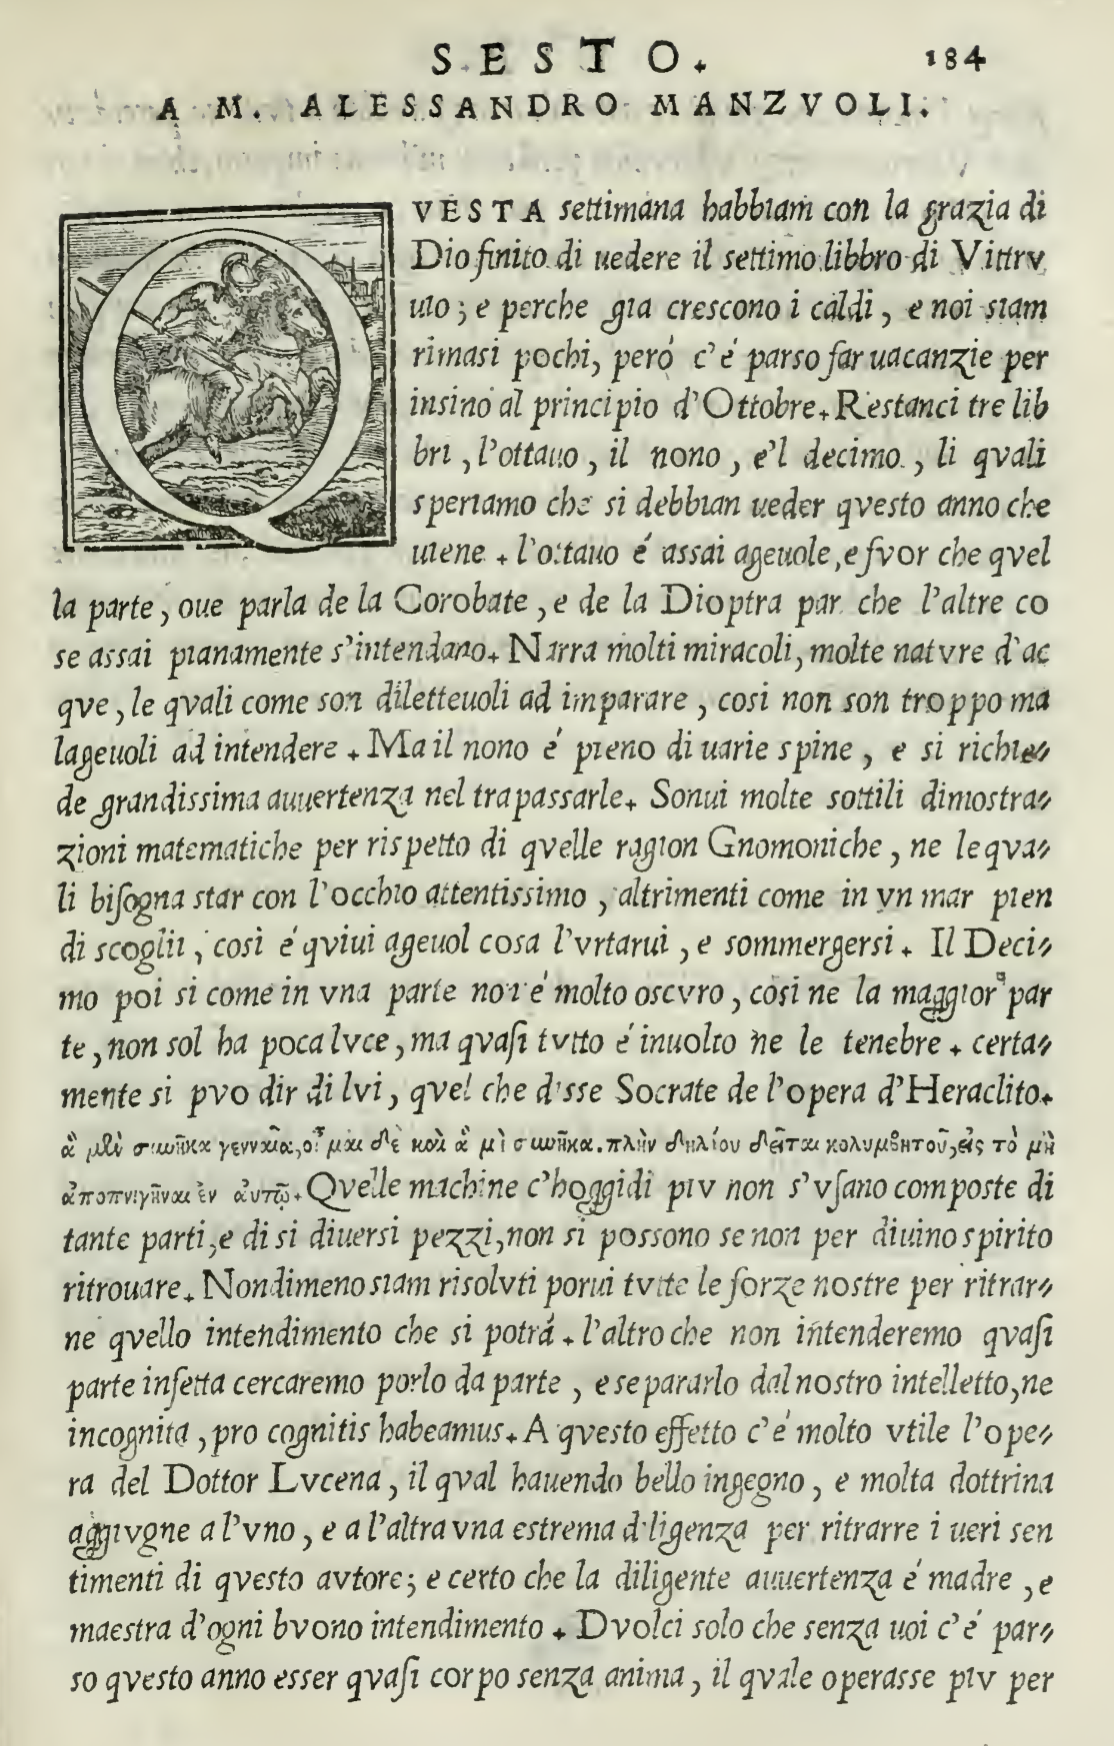 SESTO. 184
A M. ALESSANDRO MANZVOLI.
QVESTA settimana habbiam con la grazia di
Dio finito di uedere il settimo libbro di Vittrv
uio; e perche gia crescono i caldi, e noi siam
rimasi pochi, peró c'é parso far uacanzie per
insino al principio d'Ottobre. Restanci tre lib
bri, l'ottauo, il nono, e'l decimo, li qvali
speriamo che si debbian ueder qvesto anno che
uiene. l'ottauo é assai ageuole, e fvor che qvel
la parte, oue parla de la Corobate, e de la Dioptra par che l'altre co
se assai pianamente s'intendano. Narra molti miracoli, molte natvre d'ac
qve, le qvali come son diletteuoli ad imparare, cosi non son troppo ma
lageuoli ad intendere. Ma il nono é pieno di uarie spine, e si richie⸗
de grandissima auuertenza nel trapassarle. Sonui molte sottili dimostra⸗
zioni matematiche per rispetto di qvelle ragion Gnomoniche, ne le qva⸗
li bisogna star con l'occhio attentissimo, altrimenti come in vn mar pien
di scoglii, cosi é qviui ageuol cosa l'vrtarui, e sommergersi. Il Deci⸗
mo poi si come in vna parte non é molto oscvro, cosi ne la maggior par
te, non sol ha poca lvce, ma qvasi tvtto é inuolto ne le tenebre. certa⸗
mente si pvo dir di lvi, qvel che disse Socrate de l'opera d'Heraclito.
ἃ μὲν συνῆκα γενναῖα, οἶμαι δὲ καὶ ἃ μὴ συνῆκα. πλὴν δηλίου δεῖται κολυμβητοῦ, εἰς τὸ μὴ
ἀποπνιγῆναι ἐν αὐτῷ. Qvelle machine c'hoggidi piv non s'vsano composte di
tante parti, e di si diuersi pezzi, non si possono se non per diuino spirito
ritrouare. Nondimeno siam risolvti porui tvtte le forze nostre per ritrar⸗
ne qvello intendimento che si potrá. l'altro che non intenderemo qvasi
parte infetta cercaremo porlo da parte, e separarlo dal nostro intelletto, ne
incognita, pro cognitis habeamus. A qvesto effetto c'é molto vtile l'ope⸗
ra del Dottor Lvcena, il qval hauendo bello ingegno, e molta dottrina
aggivgne a l'vno, e a l'altra vna estrema diligenza per ritrarre i ueri sen
timenti di qvesto avtore; e certo che la diligente auuertenza é madre, e
maestra d'ogni bvono intendimento. Dvolci solo che senza uoi c'é par⸗
so qvesto anno esser qvasi corpo senza anima, il qvale operasse piv per